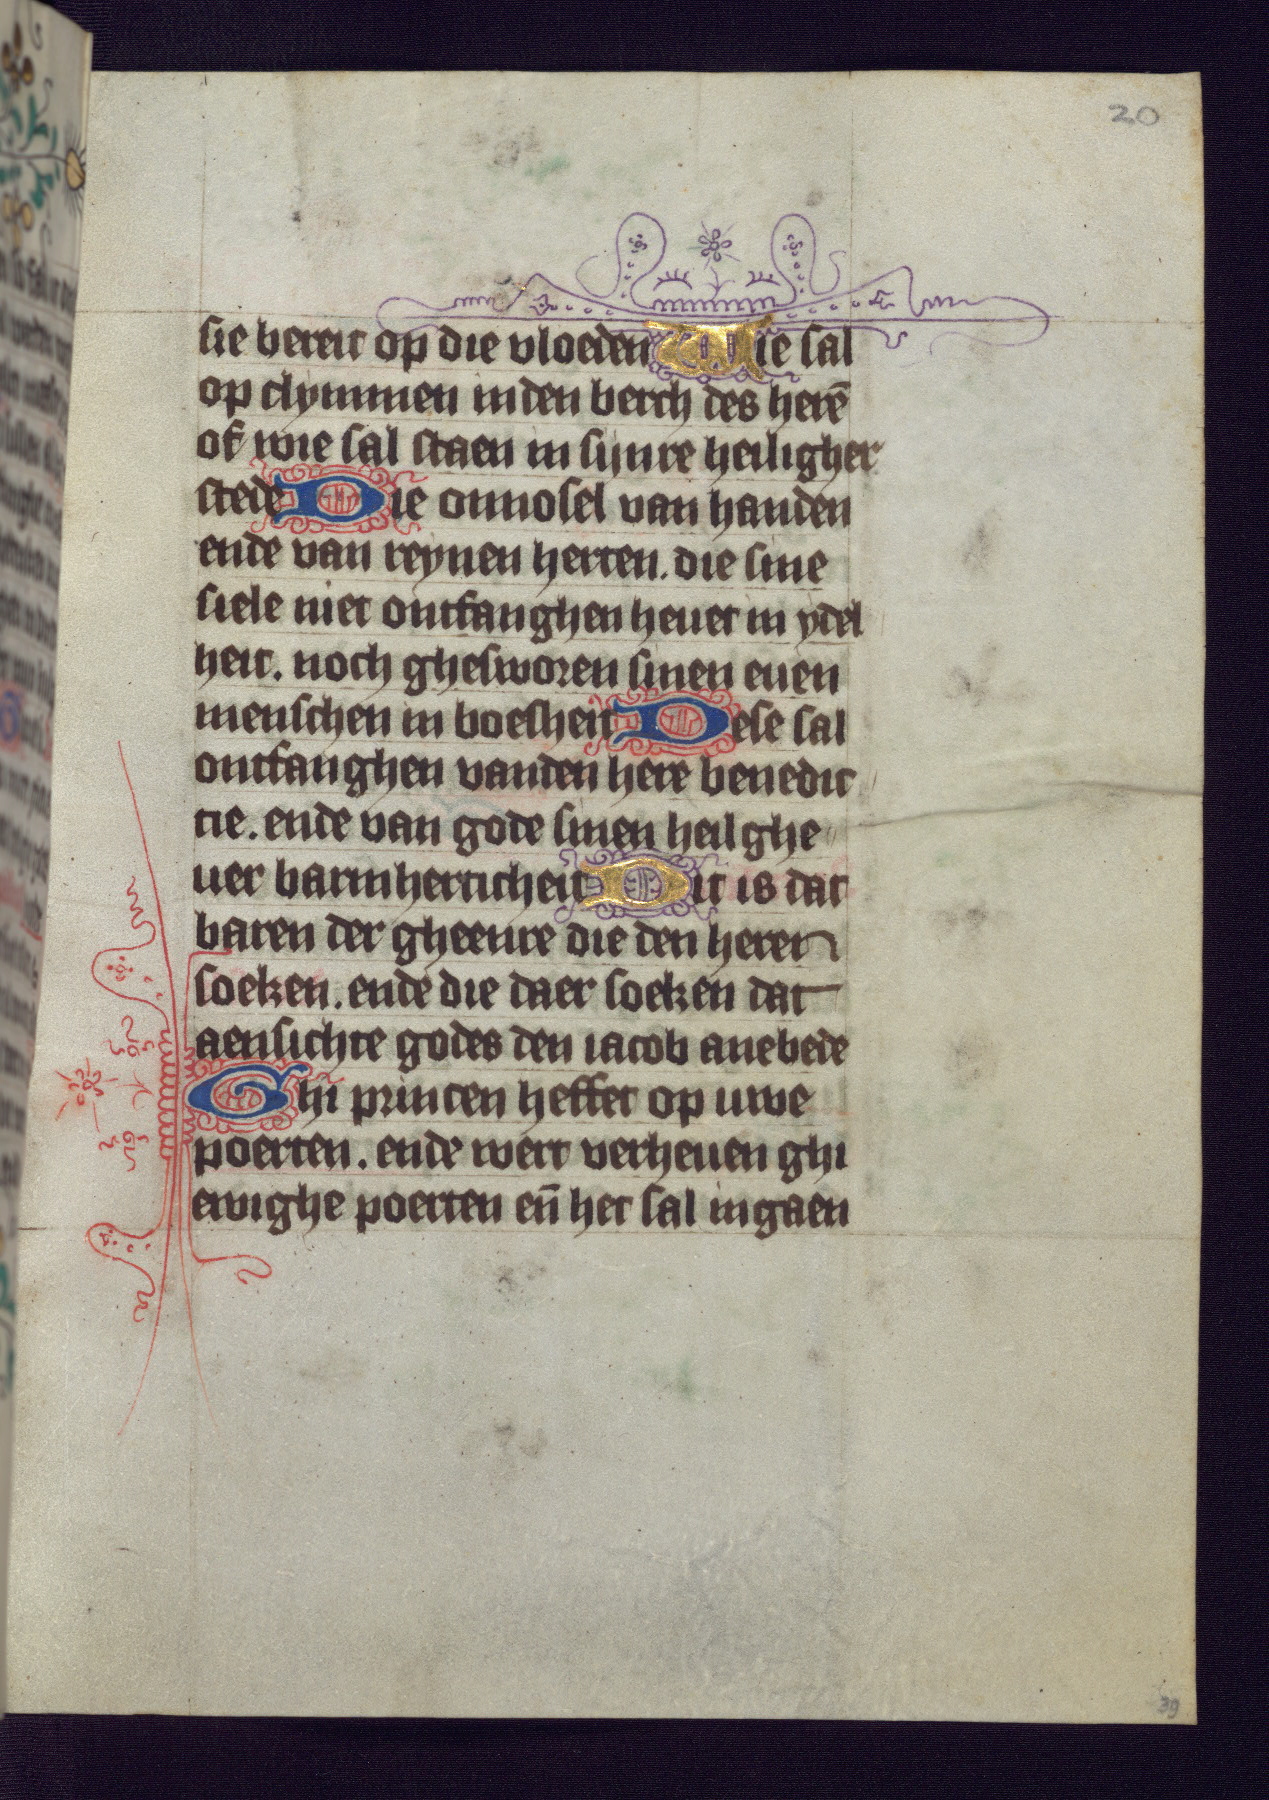 20
sie bereit op die vloeden Wie sal
op clymmen inden berch des herē
of wie sal staen in sijnre heiligher
stede Die onnosel van handen
ende van reynen herten. die sine
siele niet ontfanghen heuet in ydel
heit. noch ghesworen sinen euen
menschen in boesheit Dese sal
ontfanghen vanden here benedic
tie. ende van gode sinen heilghe
uer barmherticheit Dit is dat
baren der gheenre die den heren
soeken. ende die daer soeken dat
aensichte godes den iacob anebede
Ghi princen heffet op uwe
poerten. ende wert verheuen ghi
ewighe poerten en̄ het sal ingaen
39